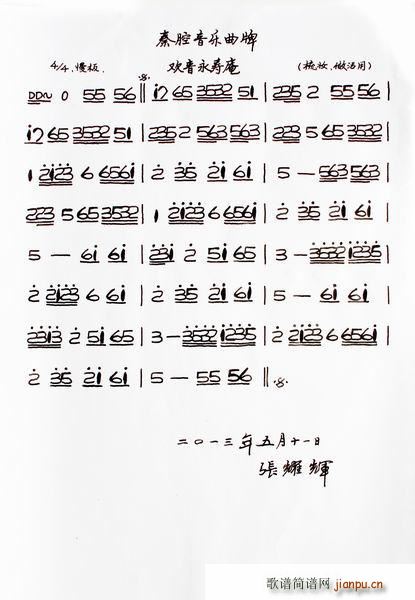 秦腔音乐曲牌
4/4 慢板. 欢音永寿庵 (梳妆、做活用)
DD~ 0 55 56 ‖ i7 65 3532 51 | 235 2 55 56 |
i7 65 3532 51 | 235 2 563 563 | 223 5 65 3532 |
1 2i23 6 656i | 2 35 2i 6i | 5 — 563 563 |
223 5 65 3532 | 1 2i23 6 656i | 2 35 2i 6i |
5 — 6i 6i | 23i 2 5i 65 | 3 — 3532 i235 |
2 2i23 6 6i | 2 35 2i 6i | 5 — 6i 6i |
23i3 2 5i 65 | 3 — 3532 i235 | 2 2i23 6 656i |
2 35 2i 6i | 5 — 55 56 ‖
二〇一三年五月十一日
張耀輝
歌谱简谱网
jianpu.cn